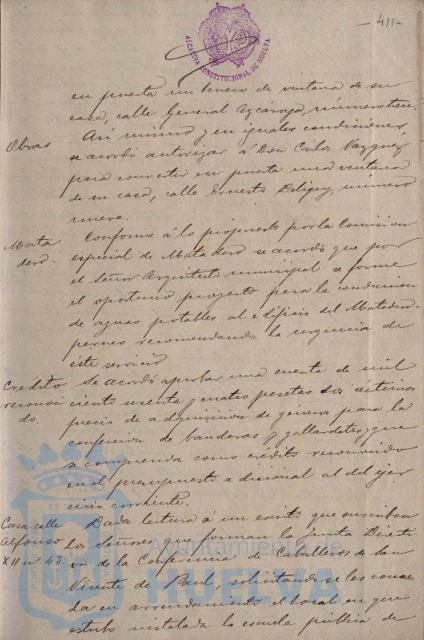 -411-
ALCALDIA CONSTITUCIONAL DE HUELVA
en puerta un hueco de ventana de su
casa, calle General Azcárraga, número
Obras
Así mismo y en iguales condiciones
se acordó autorizar á Don Carlos Vazquez
para convertir en puerta una ventana
de su casa, calle Ernesto Deligny, número
nueve.
Mata
dero.
Conforme á lo propuesto por la Comision
especial de Matadero se acordó que por
el Señor Arquitecto municipal se forme
el oportuno proyecto para la conduccion
de aguas potables al edificio del Matade-
recomendando la urgencia de
éste servicio
Credito
reconoci
do.
Se acordó aprobar una cuenta de mil
ciento sesenta y cuatro pesetas dos céntimos
precio de adquisicion de géneros para la
confeccion de banderas y gallardetes, que
se comprenda como crédito reconocido
en el presupuesto adicional al del ejer
cicio corriente.
Casa calle
Alfonso
XII nº 43
Dada lectura á un escrito que suscriben
los Señores que forman la Junta Directi
va de la Conferencia de Caballeros de San
Vicente de Paul, solicitando se les conce
da en arrendamiento el local en que
estuvo instalada la escuela pública de
Ayuntamiento de
HUELVA